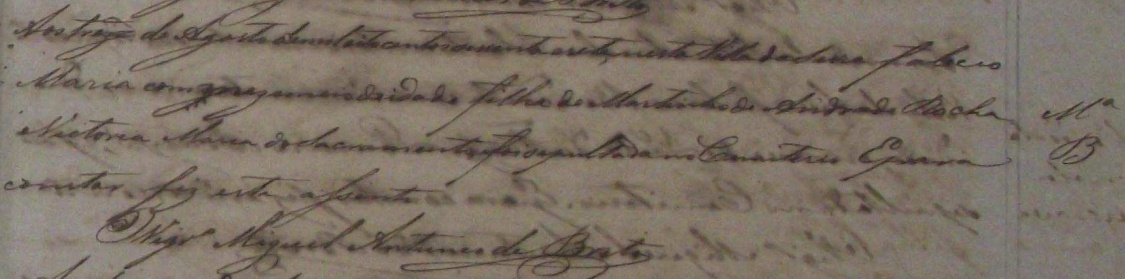 Aos treze de Agosto de mil oito centos sessenta e sete, nesta Villa da Serra faleceo
Maria com mez e meio de idade filha de Martinho de Andrade Rocha Mª
Victoria Maria do Sacramento foi sepultada no Cemiterio E para B
constar fiz este assento
Vigrº Miguel Antunes de Brito